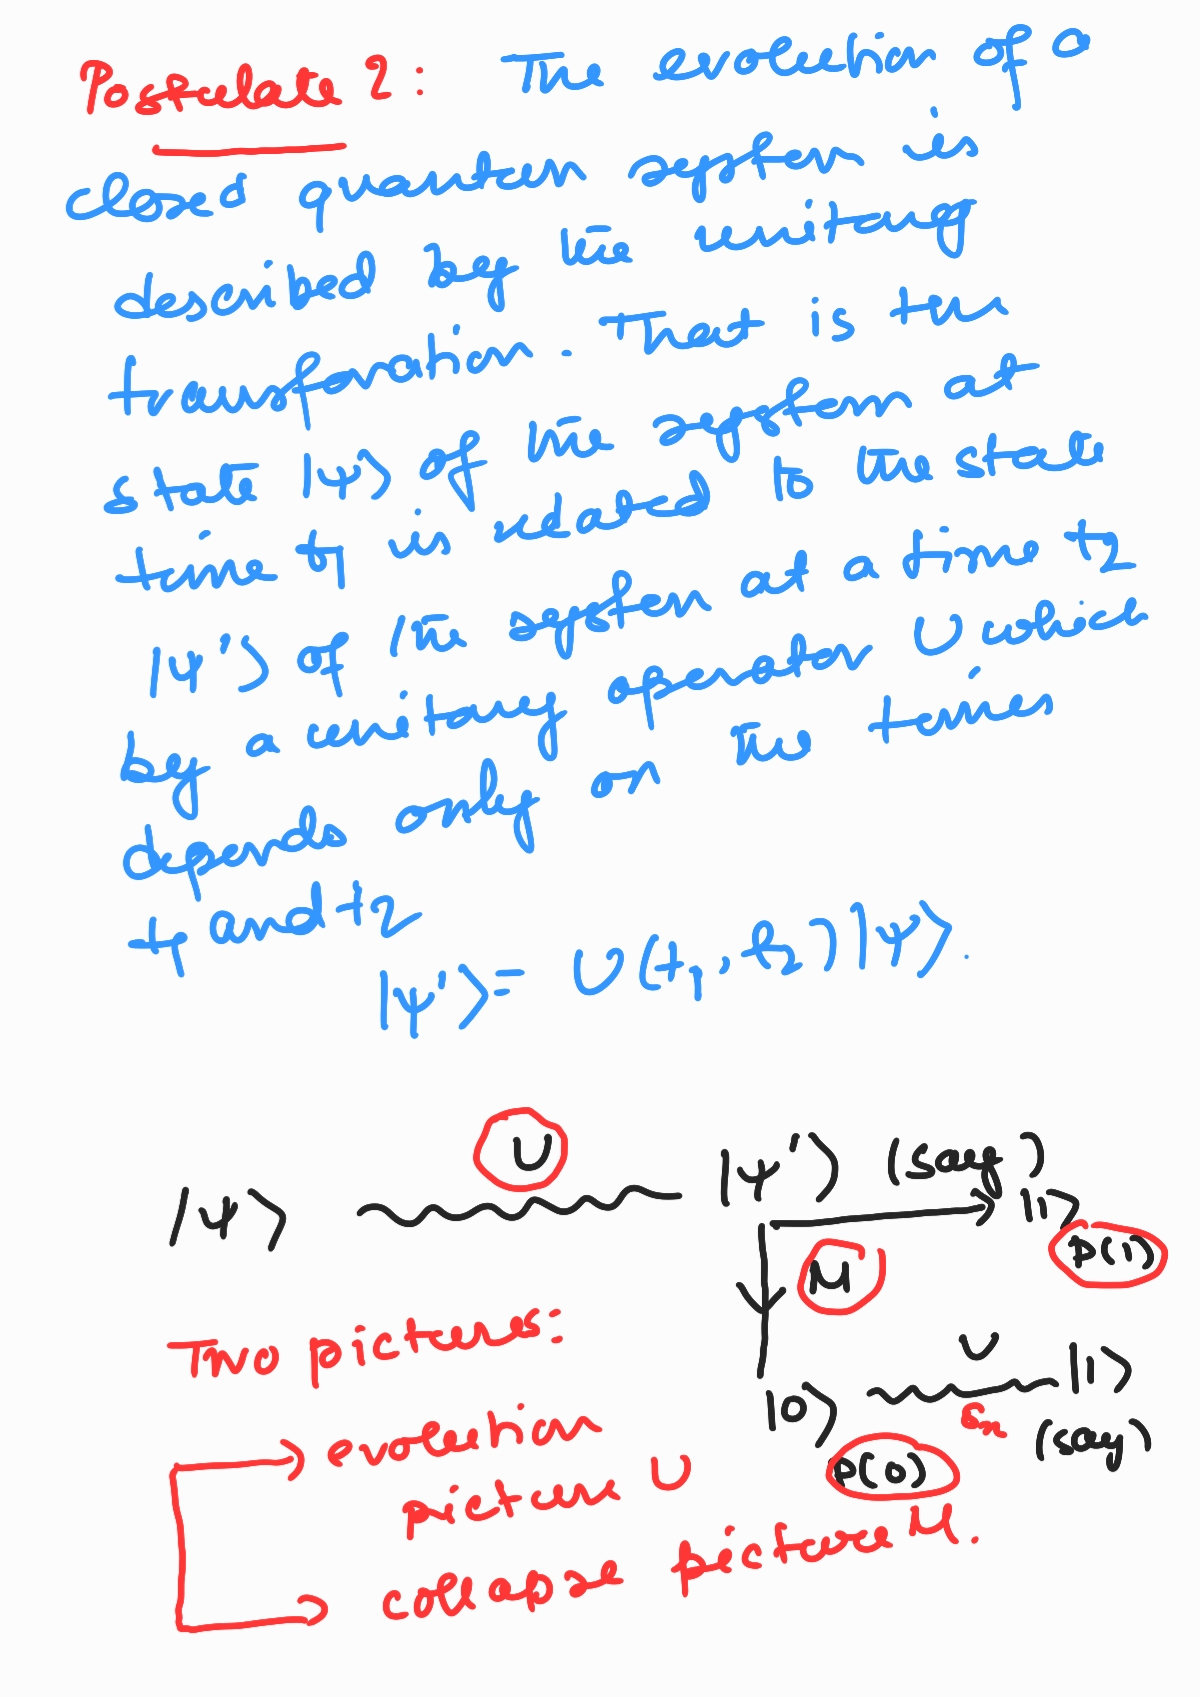 Postulate 2: The evolution of a
closed quantum system is
described by the unitary
transformation. That is the
state |ψ⟩ of the system at
time t1 is related to the state
|ψ'⟩ of the system at a time t2
by a unitary operator U which
depends only on the times
t1 and t2
|ψ'⟩ = U(t1, t2)|ψ⟩.
U
|ψ⟩ |ψ'⟩ (say)
|1⟩
M P(1)
Two pictures:
U
|0⟩ |1⟩
(say)
P(0)
evolution
picture U
collapse picture M.